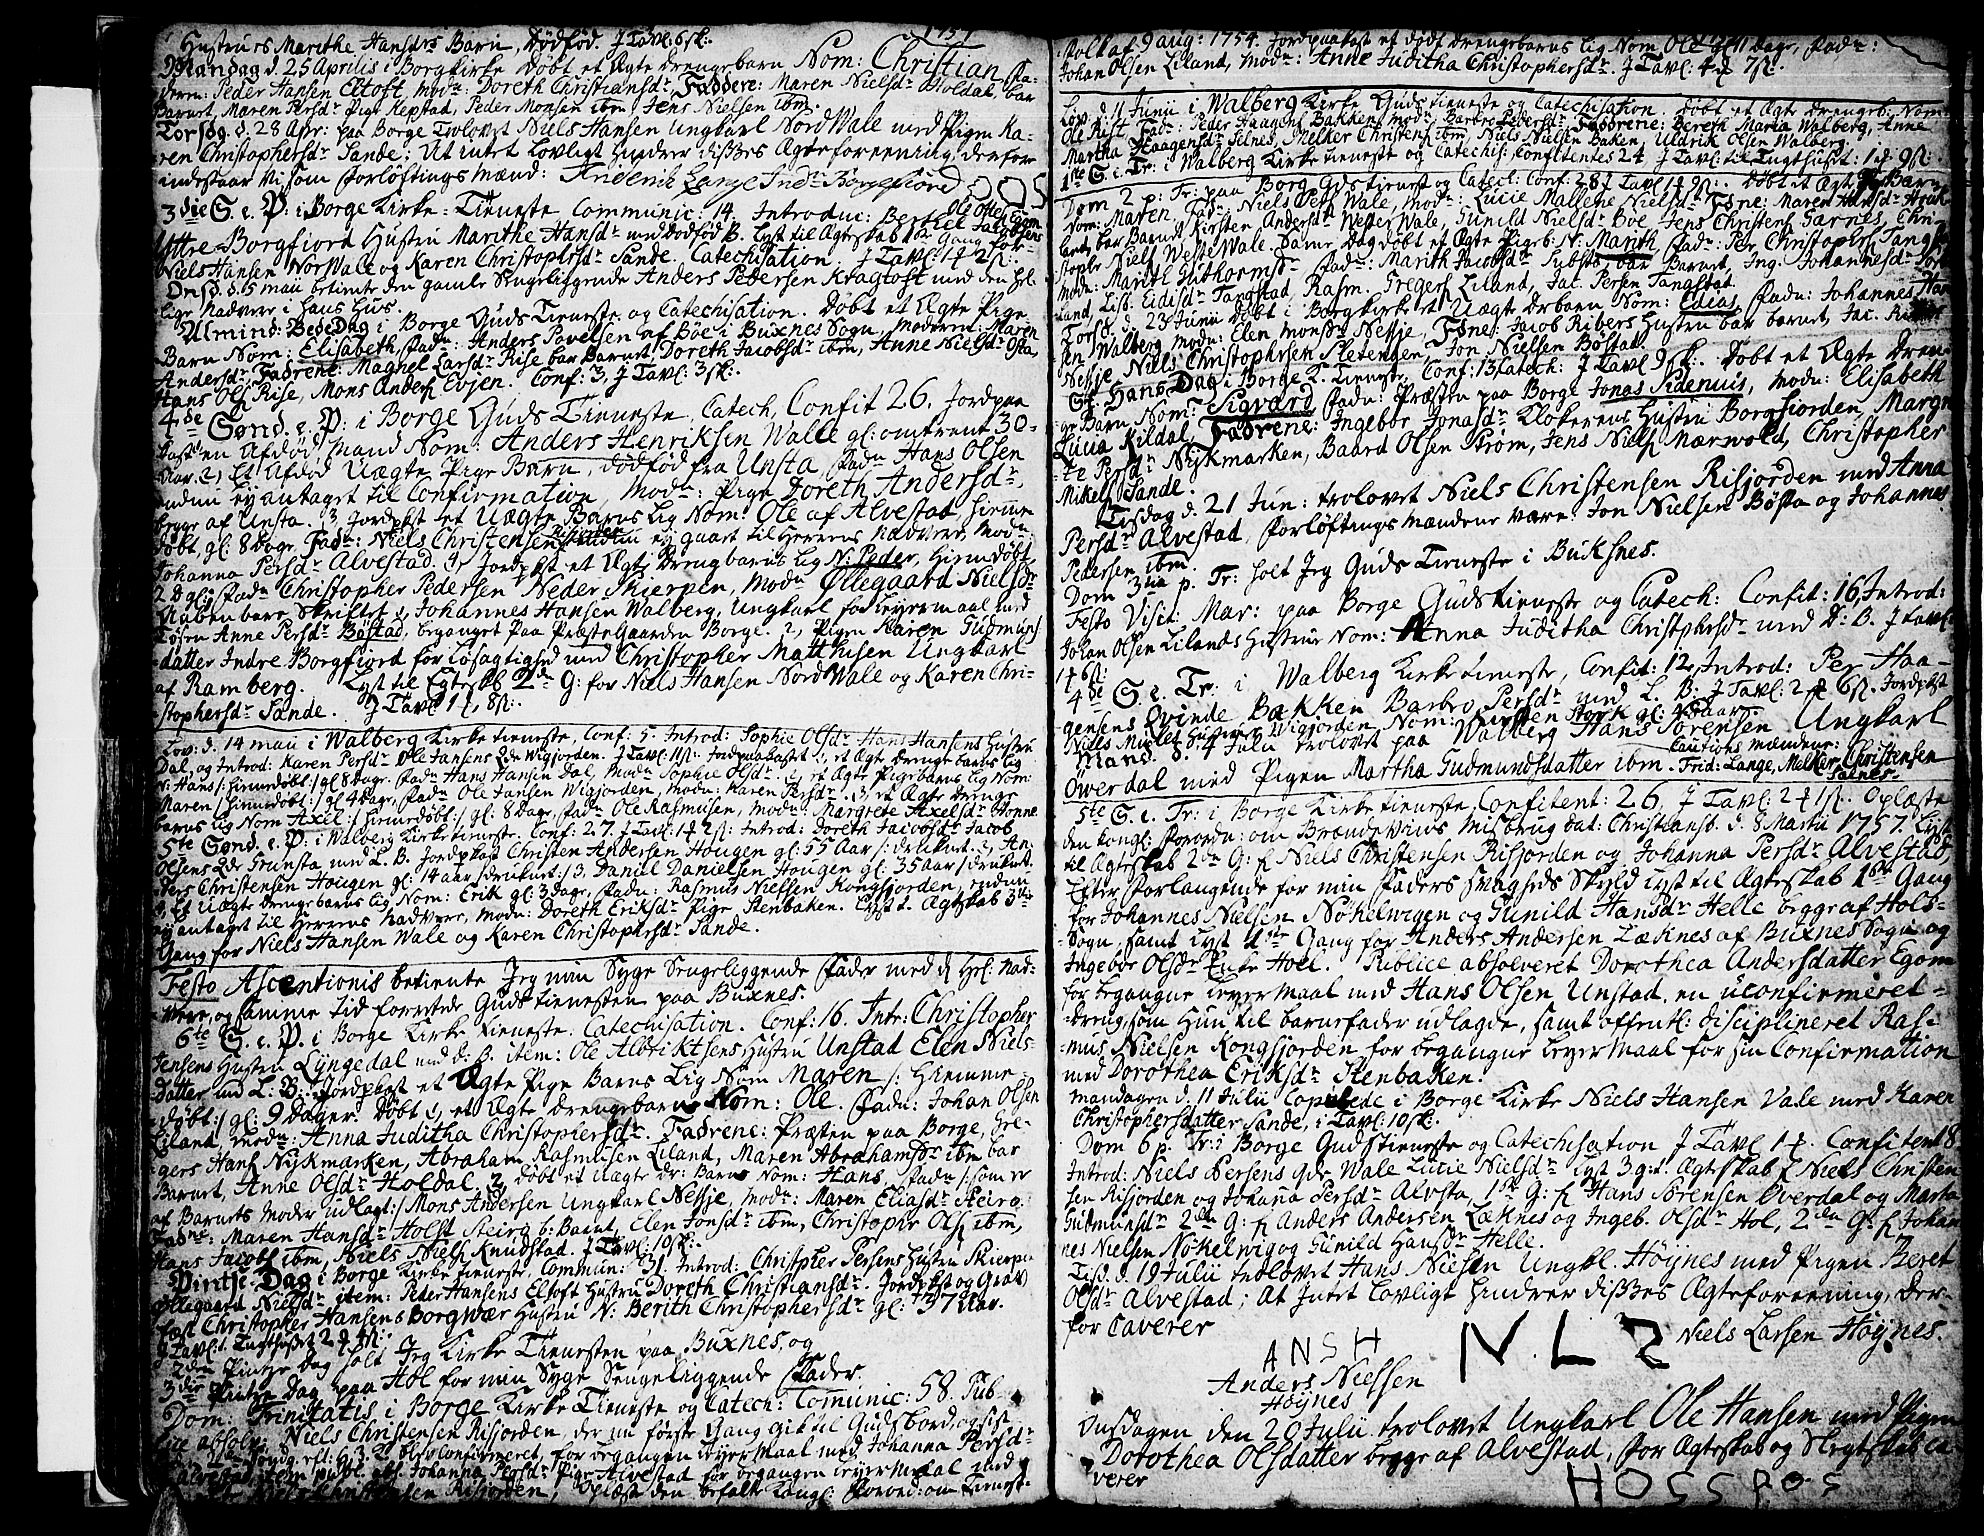 1757
Hustrues Marithe Hansdr Barn, Dødfød. J Tavl: 6 sk:.
Mandag d. 25 Aprilis i Borgkirke Døbt et Ægte drengebarn Nom: Christian Fa-
deren: Peder Hansen Eltoft, modn: Doreth Christiansdr. Faddere: Maren Nielsdr Holdal bar
Barnet, Maren Persdr Pige Kepstad, Peder Monsen ibm Jens Nielsen ibm.
Torsdg. d. 28 Apr: paa Borge Trolovet Niels Hansen Ungkarl NordWale med Pigen Ka-
ren Christophersdr Sande; At intet Lovligt hindrer disses Ægteforeening, derfore
indestaar Vi som forløftings mænd:
3die S. e. P: i Borge Kirke-Tieneste, Communic: 14. Introduc: Bertel Jacobsens
Yttre-Borgfiord Hustru Marithe Hansdr med dødfød B. Lyst til Ægteskab 1ste Gang for
Niels Hansen NorWale og Karen Christophrsdr Sande. Catechisation. J Tavl: 1 # 2 sk:.
Onsd. d. 5 maii betiente den gamle Sengeliggende Anders Pedersen Kragtoft med den hel-
lige Nadvere i hans Huus.
Almind: BedeDag i Borge Guds Tieneste og Catechisation. Døbt et Ægte Pige
Barn Nom: Elisabeth, Fadn: Anders Povelsen af Bøe i Buxnes Sogn, moderen: Maren
Andersdr Fadrene: Magnel Larsdr Rise bar Barnet, Doreth Jacobsdr ibm, Anne Nielsdr
Hans Ols: Rise, Mons Anders: Evjen. Conf: 3, J Tavl: 3 sk:.
4de Sønd. e. P: i Borge Guds Tieneste, Catech, Confit 26. Jordpaa
kast en Afdød mand Nom: Anders Henriksen Walle gl: omtrent 30-
Aar. 2, Et Afdød Uægte Pige Barn, dødfød fra Unsta, Fadn Hans Olsen
endnu ey antaget til Confirmation, Modn: Pige Doreth Andersdr,
begge af Unsta. 3, Jordpkst et Uægte Barns Lig Nom: Ole af Alvestad, hiemme
døbt, gl: 8 Dage, Fadn: Niels Christensen Risjorden ey gaaet til Herrens Nadvere, Modn:
Johanna Persdr Alvestad. 4, Jordpkst et Ægte Drengbarns Lig N: Peder, hiemdøbt
Fadn Christopher Pedersen Neder Skierpen, Modn Øllegaard Nielsdr
Aabenbare Skriftet 1, Johannes Hansen Walberg, Ungkarl for Leyermaal med
Tøsen Anne Persdr Bøstad, beganget paa PræsteGaarden Borge. 2, Pigen Karen Gudmuns
datter Indre Borgfiord for Løsagtighed med Christopher Matthisen Ungkarl
af Ramberg. Lyst til Egtesk: 2den G: for Niels Hansen NordWale og Karen Chri-
stophersdr Sande. J Tavl 1 #, 8 sk:.
Løv. d. 14 maii i Walberg Kirke tieneste, Conf: 5. Introd: Sophie Olsdr Hans Hansens Hustru
Dal, og Introd: Karen Persdr Ole Jansens Qde Wigjorden. J Tavl: 11 sk:. Jordpaakastet 1, et Ægte drengebarns lig
N: Hans /: hiemdøbt :/ gl 8 Dage, Fadn Hans Hansen Dal, Modn Sophie Olsdr. 2, et Ægte Pigebarns Lig Nom:
Maren /: hiemdøbt :/ gl 4 Dage, Fadn Ole Jansen Wigjorden, Modn: Karen Persdr. 3, et Ægte drenge
barns lig Nom Axel /: hiemdøbt :/ gl: 8 Dage, Fadn Ole Rasmusen, Modn: Margrete Axelsdr
5te Sønd. e. P: i Walberg Kirketieneste. Conf: 27. J Tavl: 1 # 2 sk: Introd: Doreth Jacobsdr Jacob
Olsens Qde Grunsta, med L. B. Jordpkast Christen Andersen Hougen gl: 55 Aar /: druknet. 2, An-
ders Christensen Hougen gl: 14 aar /: druknet :/ 3. Daniel Danielsen Hougen gl: 35 Aar /: druknt.
4, et Uægte drengebarns lig Nom: Erik gl: 3 Dage, Fadn: Rasmus Nielsen Kongsjorden, endnu
ey antaget til Herrens Nadvere, Modn: Doreth Eriksdr Pige Stenbaken. Lyst t. Ægtskab 3die
Gang for Niels Hansen Wale og Karen Christophrsdr Sande.
Festo Ascentionis betiente Jeg min Syge Sengeliggende Fader med d. Hel: Nad-
vere, og samme tid forrettede Guds tienesten paa Buxnes.
6te S. e. P. i Borge Kirke tieneste. Catechisation. Conf: 16. Intr: Christopher
Jensens Hustru Lyngedal med d. B. item: Ole Albriktsens Hustru Unstad Elen Niels-
Datter med L. B. Jordpkast et Ægte Pige Barns Lig Nom Maren /: hiemme-
døbt :/ gl: 9 Dager. Døbt 1, et Ægte drengebarn Nom: Ole. Fadn: Johan Olsen
Liland, modn: Anna Juditha Christophersdr. Fadrene: Præsten paa Borge, Gre-
gers Hans: Nykmarken, Abraham Rasmusen Liland, Maren Abrahamsdr ibm bar
Barnet, Anne Olsdr Holdal. 2, Døbt et Uægte dr: Barn Nom: Hans, Fadn /: som er
af Barnets Moder udlagt :/ Mons Andersen Ungkarl Nesje, Modn: Maren Eliasdr Steiro:
Fadne: Maren Hansdr Holst Steirog b: Barnt, Elen Jonsdr ibm, Christophr Ols: ibm,
Hans Jacobs: ibm, Niels Niels: Knudstad. J Tavl: 10 sk:.
Pintse-Dag i Borge Kirke tieneste. Commun: 31. Introd: Christpher Persens Hustru Skierpen
Øllegaard Nielsdr item: Peder Hansens Eltoft Hustru Doreth Christiansdr. Jordpkst og Grav
fæst Christopher Hansens Borgwær Hustru N: Berith Christophersdr gl: 37 Aar.
J Tavl: t. Tugthuset 2 # 4 sk:.
2den Pintse Dag holt Jeg Kirke Tienesten paa Buxnes, og
3die Pintse Dag paa Hol for min Syge Sengeliggende Fader.
Dom: Trinitatis i Borge Kirke Tieneste og Catech: Comunic: 58. Pub-
lice absolv: Niels Christensen Risjorden, der nu første Gang gik til Guds bord, og sist
for begangen Leyermaal med Johanna Persdr
Alvestad, item publ. abs. Johanna Persdr Pige Alvestad for begangen leyermaal med
Niels Christensen Risjorden, Oplæste den befalte Kongl: Forord: om
Skolk af 9 aug: 1754. Jordpaakast et dødt drengebarns lig Nom Ole gl 11 Dage, Fadn:
Johan Olsen Liland, Modn: Anne Juditha Christophersdr. J Tavl: 4 # 7 sk:.
Løv. d. 11 Junii i Walberg Kirke Guds tieneste og Catechisation døbt et Ægte drengeb: Nom:
Ole Fadn: Peder Haagens: Bakken, modn: Barbro Pedersdr. Fadrene: Bereth Maria Walberg, Anne
Martha Haagensdr Selnes, Melker Christens: ibm, Niels Nielsen Baken, Uldrik Olsen Walberg.
1ste S. e. Tr: i Walberg Kirketieneste og Catechis: Confitentes 24 J Tavl: til Tugthuset: 1 # 9 sk:.
Dom 2 p: Tr: paa Borg Gdstieneste og Catecl: Conf: 28 J Tavl 1 # 9 sk:. Døbt et Ægt: P: Barn
Nom: Maren, Fadn: Niels Pers: Wale, Modn: Lucie Mallene Nielsdr Fsne: Maren Hansdr
bar Barnet Kirsten Andersdr WesterWale, Gunild Nielsdr Boe Jens Christens: Garnes, Chri-
stophr Niels: WesteWale. Samme Dag døbt et Ægte Pigeb: N: Marith, Fadn: Per Christophrs: Tangsta
Modn: Marith Gutkormsdr. Fadn: Marith Jacobsdr bar Barnet, Ing. Johannesdr
land, Lisb. Eidisdr Tangstad, Rasm. Gregers: Liland, Jac: Persen Tangstad.
Torsd. d. 23 Junii døbt i Borgkirke et Uægte drbarn Nom: Edias, Fadn: Johannes Han-
sen Walberg Modn: Elen Monsdr Nesje, Fsne: Jacob Ribers Hustru bar barnet, Jac.
Nessje, Niels Christophersen Sletengen, Jon Nielsen Bøstad.
St: Hans Dag i Borge K. Tieneste, Conf: 13 Catech: J Tavl 9 sk:. Døbt et Ægte Dren-
ge Barn, Nom: Sigvard, Fadn: Præsten paa Borge Jonas Sidenius, Modn: Elisabeth
Lucia Kildal, Fadrene: Ingebor Jonasdr Klokerens Hustru Borgfiorden, Margre
te Persdr Nykmarken, Baard Olsen Strøm, Jens Niels: Mærwold, Christopher
Mikels: Sande.
Tisdag d. 21 Jun: trolovet Niels Christensen Risjorden med Anna
Persdr Alvestad, Forløftings Mændene vare: Jon Nielsen Bøsta og Johannes
Pedersen ibm.
Dom 3tia p. Tr: holt Jeg Guds Tieneste i Buksnes.
Festo Visit: Mar: paa Borge Gudstieneste og Catech: Confit: 16, Introd:
Johan Olsen Lilands Hustrue Nom: Anna Juditha Christphersdr med D: B. J Tavl:
1 # 6 sk:.
4de S. e. Tr: i Walberg Kirke tieneste, Confit: 12, Introd: Per Haa-
gensens Qvinde Bakken Barbro Persdr med L. B. J Tavl: 2 # 6 sk. Jordpkst
Niels Hustrue Wigjorden Nom: Kirsten gl: 48 aar.
Mand. d. 4 Julii trolovet paa Walberg Hans Sørensen Ungkarl
Cautions mændene:
Øwerdal med Pigen Martha Gudmundsdatter ibm. Frid: Lange, Melker Christensen
Salnes.
5te S. e. Tr: i Borge Kirke tieneste, Confitent: 26, J Tavl: 2 # 1 sk:. Oplæste
den Kongl: Forordn: om Brændeviins Misbrug dat: Christiansb. d. 8 Martii 1757. Lyst
til Ægteskab 2den G: f Niels Christensen Risjorden og Johanna Persdr Alvestad,
Efter Forlangende for min Faders svagheds Skyld Lyst til Ægteskab 1ste Gang
for Johannes Nielsen Nøkelwigen og Gunild Hansdr Helle begge af Hols-
Sogn, samt Lyst 1ste Gang for Anders Andersen Læknes af Buxnes Sogn og
Ingebor Olsdr Enke Hoel. Publice absolveret Dorothea Andersdatter Egom
for begangne leyer Maal med Hans Olsen Unstad, en uconfirmeret
dreng, som Hun til barnefader udlagde, samt offentl: disciplineret Ras-
mus Nielsen Kongsjorden for begangne leyer Maal for sin Confirmation
med Dorothea Eriksdr Stenbaken.
mandagen d. 11 Julii Copulerede i Borge Kirke Niels Hansen Vale med Karen
Christophersdatter Sande, i Tavl: 10 sk:.
Dom 6 p: Tr: i Borge Gudstieneste og Catechisation J Tavl 1 #. Confitent 8
Introd: Niels Persens qde Wale Lucie Nielsdr Lyst 3 g: t. Ægteskab f Niels Christen
sen Risjorden og Johana Persdr Alvsta, 1ste G: f Hans Sørensen Øverdal og Marta
Gudmunsdr 2den G: f Anders Andersen Læknes og Ingeb. Olsdr Hol, 2den G: f Johan
nes Nielsen Nøkelwig og Gunild Hansdr Helle.
Tisd. d. 19 Julii trolovet Hans Nielsen Ungkl. Høynes med Pigen Beret
Olsdr Alvestad; At Intet Lovligt hindrer disses Ægteforeening, Der-
for Caverer
ANSH N. L S Niels Larsen Høynes.
Anders Nielsen
Høynes
Onsdagen den 20 Julii trolovet Ungkarl Ole Hansen med Pigen
Dorothea Olsdatter begge af Alvestad, for Ægteskab og Slegtskab ca-
verer
HOSS POS